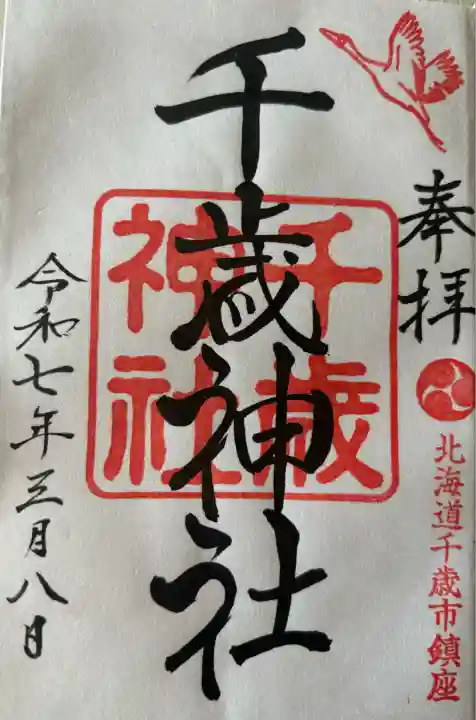 奉拝
北海道千歳市鎮座
千歳神社
千歳
神社
令和七年三月八日